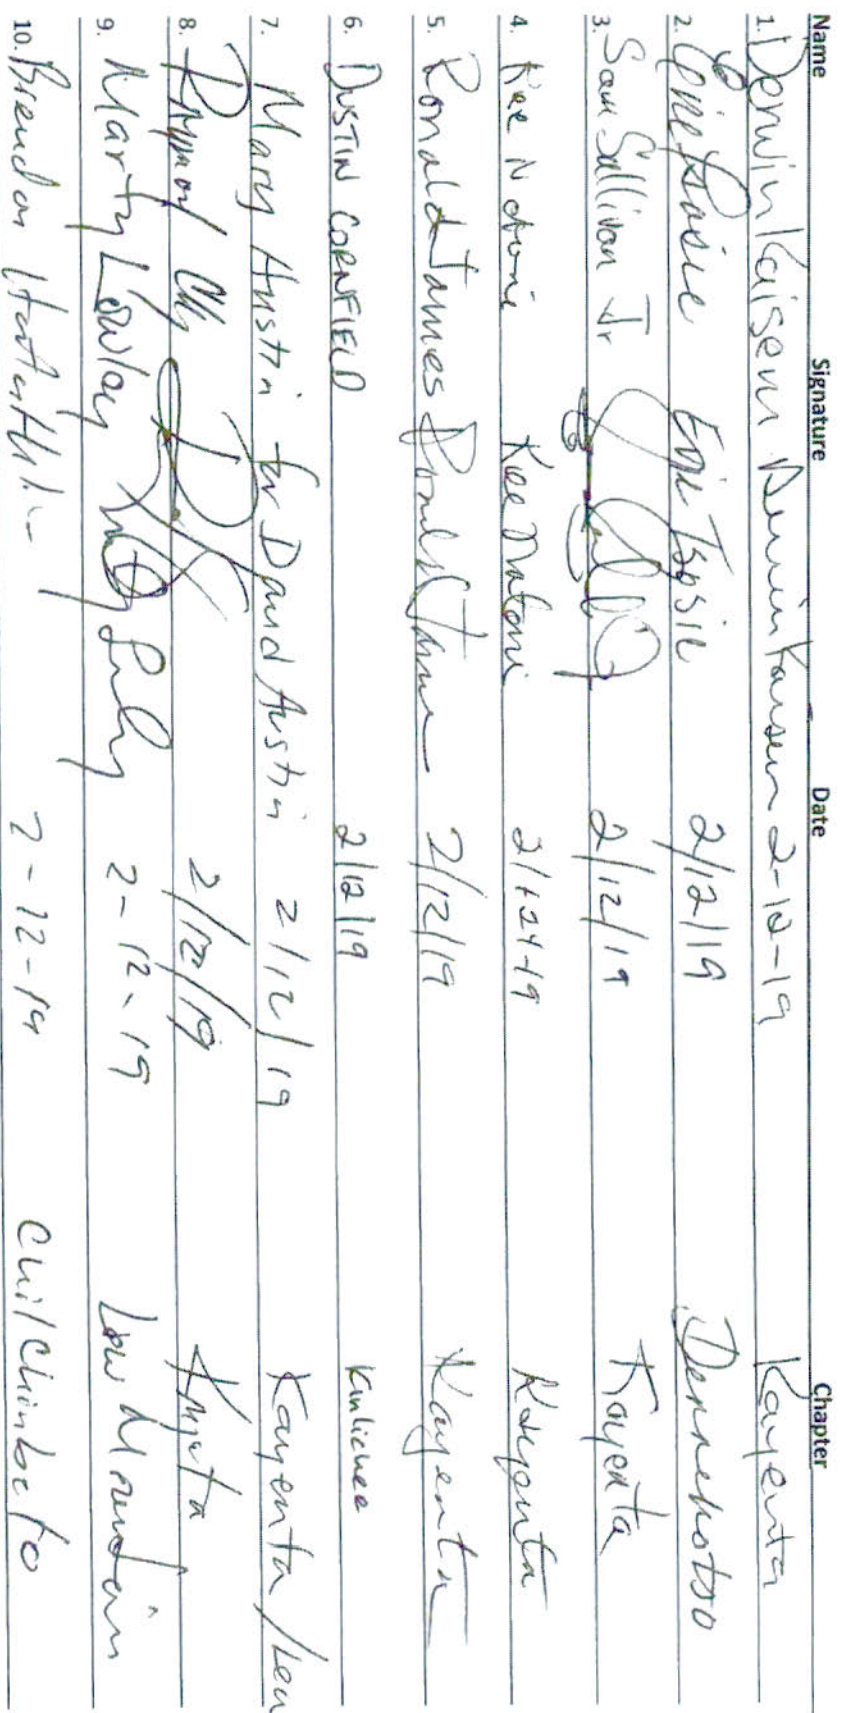 Name Signature Date Chapter
1. Derwin Kaisen Derwin 2-12-19 Kayenta
2. Eric Tsosie Eric Tsosie 2/12/19 Dennehotso
3. Sam Sullivan Jr 2/12/19 Kayenta
4. Kee Natoni Kee Natoni Kayenta
5. Ronald James Ronald James 2/12/19 Kayenta
6. DUSTIN CORNFIELD 2/12/19 Kinlichee
7. Mary Austin for David Austin 2/12/19 Kayenta/
8. 2/12/19
9. Marty 2-12-19 Low Mountain
10. 2-12-19 Chilchinbeto